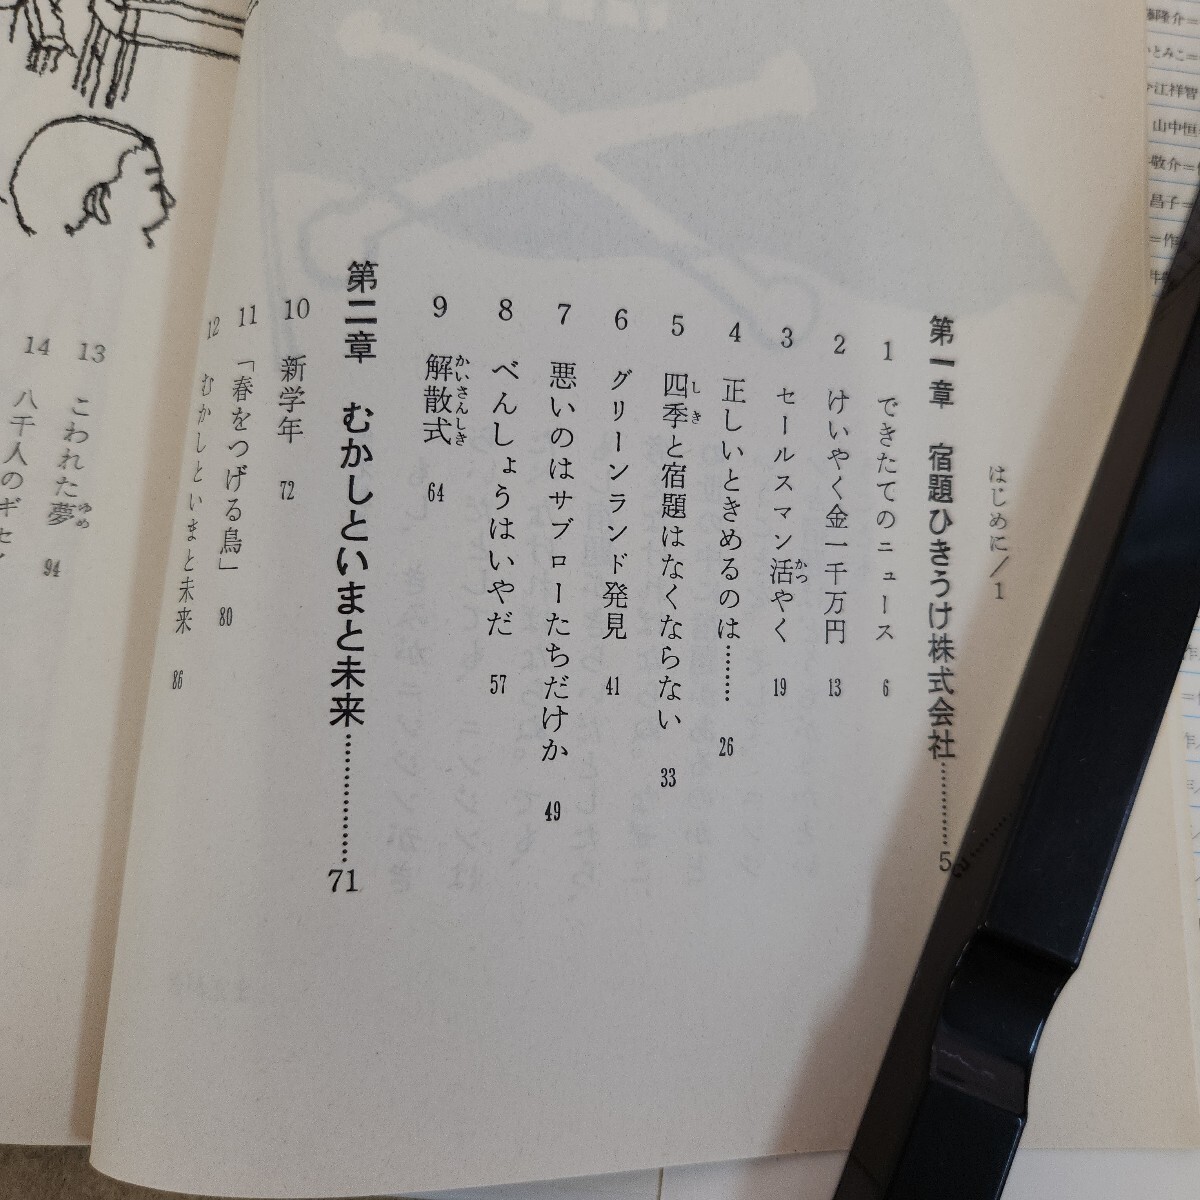 はじめに/1
第一章 宿題ひきうけ株式会社…………5
1 できたてのニュース 6
2 けいやく金一千万円 13
3 セールスマン活やく 19
かつ
4 正しいときめるのは…… 26
5 四季と宿題はなくならない 33
しき
6 グリーンランド発見 41
7 悪いのはサブローたちだけか 49
8 べんしょうはいやだ 57
9 解散式 64
かいさんしき
第二章 むかしといまと未来…………71
10 新学年 72
11 「春をつげる鳥」 80
12 むかしといまと未来 86
13 こわれた夢 94
ゆめ
14 八千人のギセイ
隆介=
とみこ=
江祥智
山中恒
敬介=
昌子=
=作